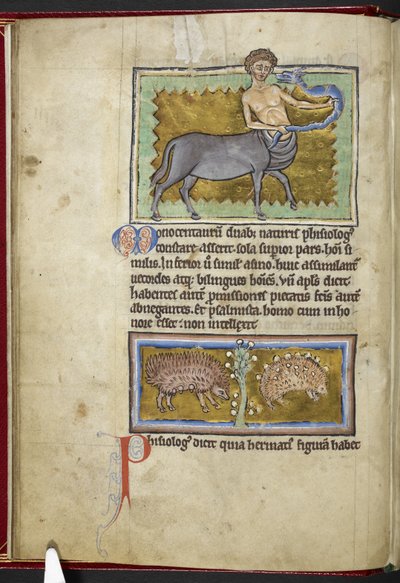 Monocentaurū duab; naturis phisiolog⁹
constare asserit. sola suꝑior pars. hōi si
milis. Inferior ū simil' asino. huic assimilant̄
uecordes atq; bilingues hōiēs. vn̄ apl's dicit
habentes autē ꝓmissionēs pietatis. fctīs autē
abnegantes. Et psalmista. homo cum in ho
nore esset: non intellexit
Phisiolog⁹ dicit quia herinati⁹ figurā habet